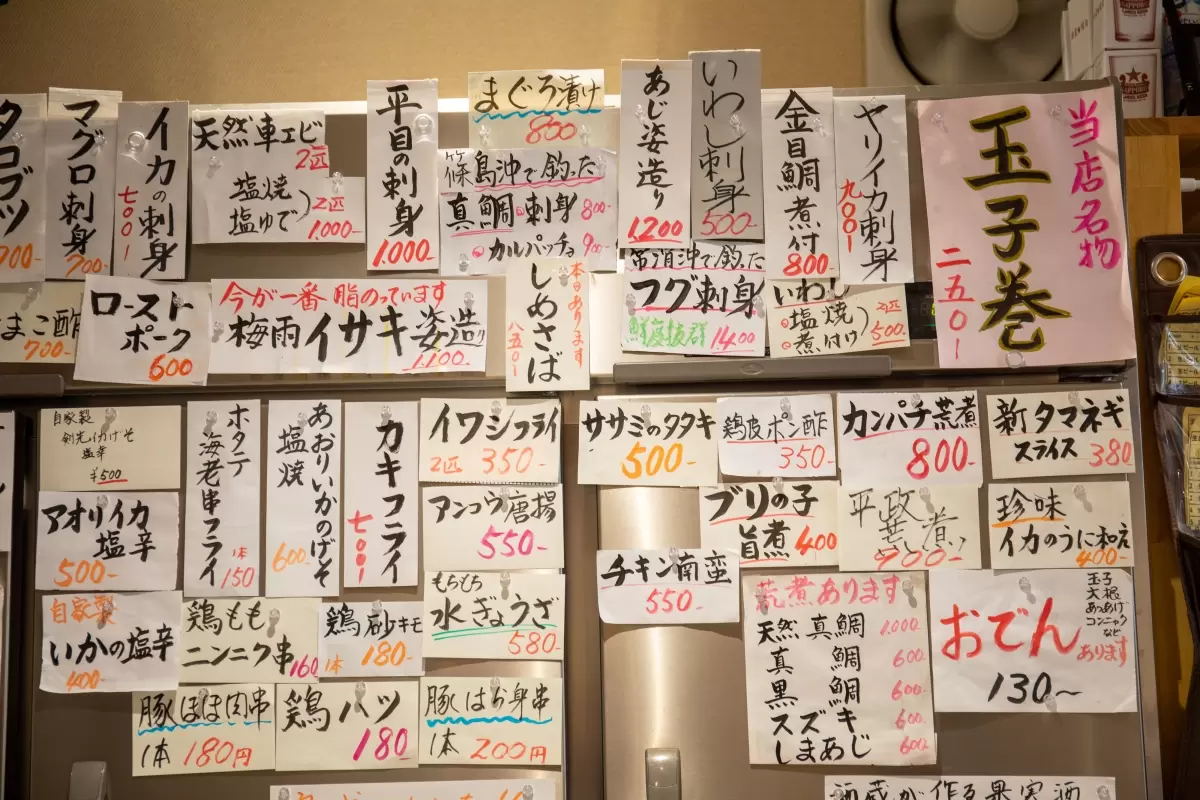 タコブツ
700-
マグロ刺身
700-
イカの刺身
七〇〇-
天然車エビ
2匹
塩焼
塩ゆで
2匹
1.000-
平目の刺身
1.000-
まぐろ漬け
800
篠島沖で釣った
真鯛の刺身 800-
〃カルパッチョ 900-
あじ姿造り
1200
いわし刺身
500-
金目鯛煮付
800-
ヤリイカ刺身
九〇〇-
当店名物
玉子巻
二五〇-
まこ酢
700-
ロースト
ポーク
600
今が一番 脂のっています
梅雨イサキ姿造り
1.100-
本日あります
しめさば
八五〇-
沖で釣った
フグ刺身
鮮度抜群 1400
いわし
塩焼
煮付け
2匹
500-
自家製
剣先イカげそ
塩辛
¥500
ホタテ
海老串フライ
1本
150
あおりいかのげそ
塩焼
600-
カキフライ
七〇〇-
イワシフライ
2匹 350-
ササミのタタキ
500-
鶏皮ポン酢
350-
カンパチ荒煮
800-
新タマネギ
スライス 380
アオリイカ
塩辛
500-
アンコウ唐揚
550-
ブリの子
旨煮 400
平政
荒煮
700-
珍味
イカのうに和え
400-
自家製
いかの塩辛
400-
鶏もも
ニンニク串 160
鶏砂キモ
1本 180-
もちもち
水ぎょうざ
580-
チキン南蛮
550-
荒煮あります
天然 真鯛 1.000-
真鯛 600-
黒鯛 600-
スズキ 600-
しまあじ 600-
おでん
玉子
大根
あつあげ
コンニャク
など
あります
130〜
豚ほほ肉串
1本 180円
鶏ハツ
180
豚はらみ串
1本 200円
酒蔵が作る果実酒